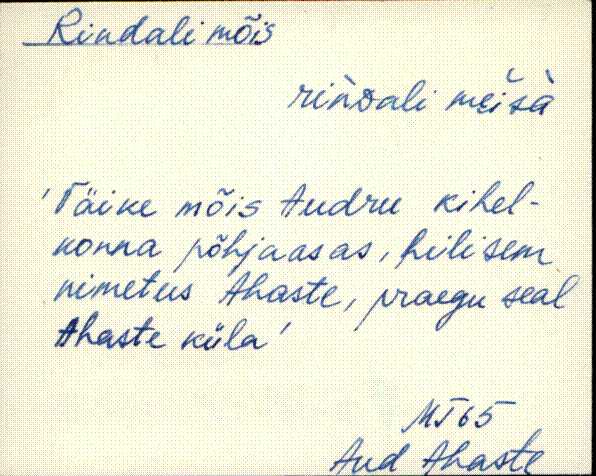 Rindali mõis
rìǹᴅali mei̯šà
'Väike mõis Audru kihel-
konna põhjaosas, hilisem
nimetus Ahaste, praegu seal
Ahaste küla'
MJ65
Aud Ahaste